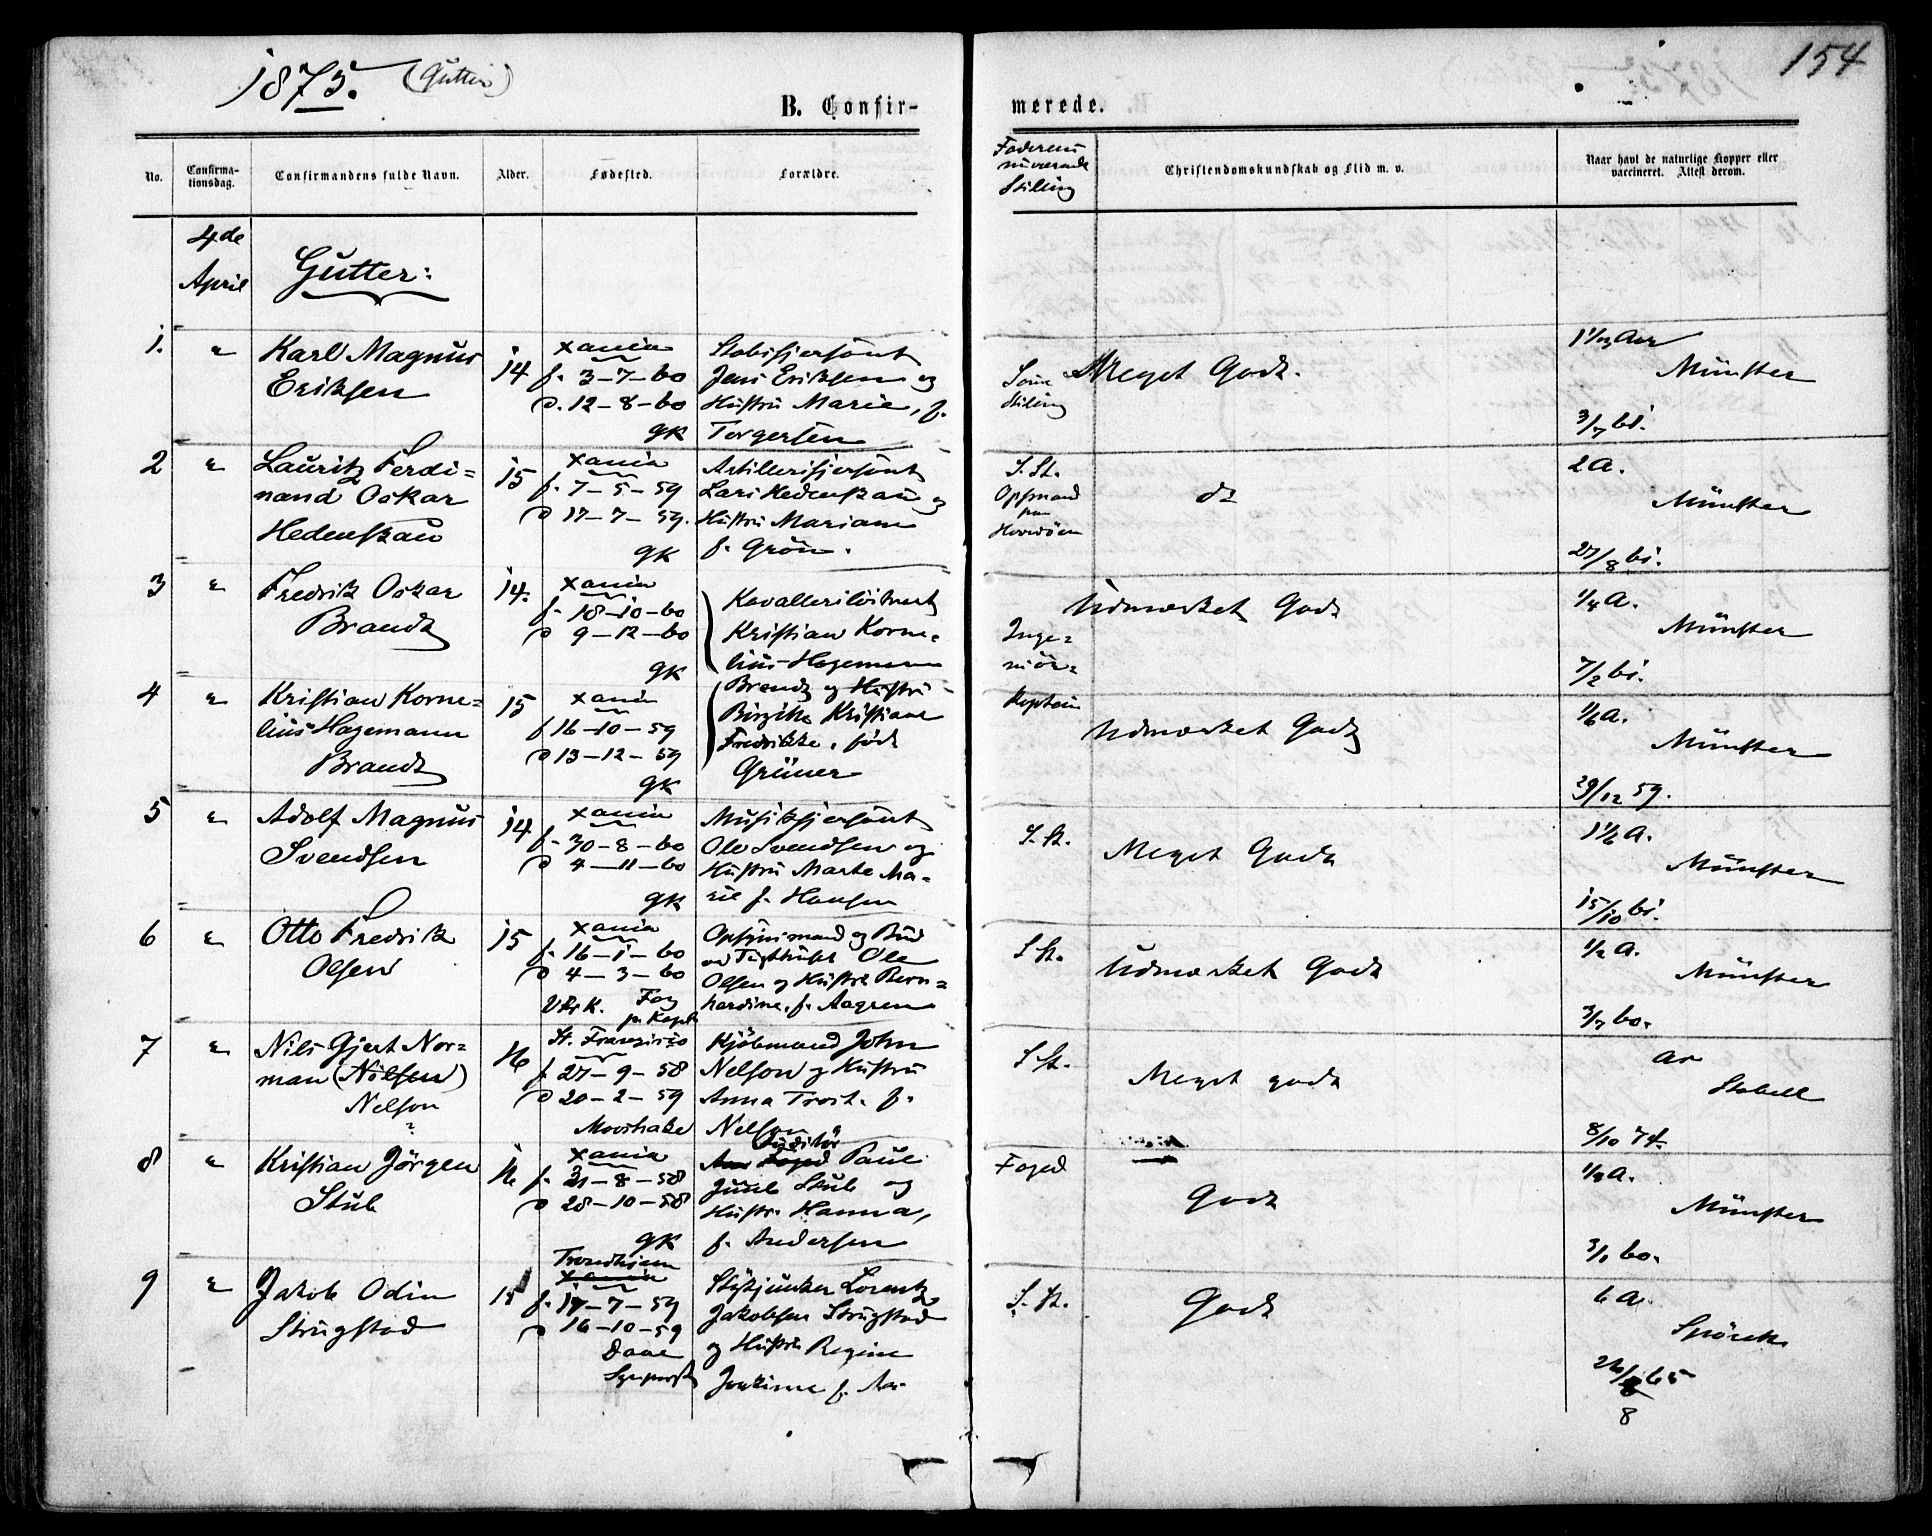 1875. (Gutter)
154
B. Confir-
merede.
No.
Confirma-
tionsdag.
Confirmandens fulde Navn.
Alder.
Fødested.
Forældre.
Faderens
nuværende
Stilling
Christendomskundskab og Flid m. v.
Naar havt de naturlige Kopper eller
vaccineret. Attest derom.
4de
April
Gutter:
1.
"
Karl Magnus
Eriksen
14
Xania
f. 3-7-60
d. 12-8-60
GK
Jens Eriksen og
Hustru Marie, f.
Torgersen
Samme
Stilling
Meget Godt.
Münster
3/7 61.
2
"
Lauritz Ferdi=
nand Oskar
Hedenskau
15
Xania
f. 7-5-59
d 17-7-59.
GK
Artillerisjersant
Lars Hedenskau og
Hustru Mariane
f. Grön.
S. St.
Opsmand
paa
Hovedöen
do
2 A.
Münster
27/8 61.
3
"
Fredrik Oskar
Brandt
14.
Xania
f. 18-10-60
d 9-12-60
GK
Kavalleriløitnant
Kristian Korne=
lius Hagemann
Inge=
niör=
Udmærket Godt
1/4 A.
Münster
7/2 61.
4
"
Kristian Korne=
lius Hagemann
Brandt
15
Xania
f 16-10-59
d 13-12-59
GK
Brandt og Hustru
Birgitte Kristiane
Fredrikke, född
Grüner
Kaptein
Udmærket Godt
1/6 A.
Münster
30/12 59.
5
"
Adolf Magnus
Svendsen
14
Xania
f. 30-8-60
d 4-11-60
GK
Musiksjersant
Ole Svendsen og
Hustru Marte Ma=
rie f. Hansen
S. St.
Meget Godt
1 1/2 A.
Münster
15/10 61.
6
"
Otto Fredrik
Olsen
15
Xania
f. 16-1-60
d 4-3-60
Opsynsmand og Bud
Ole
Olsen og Hustru Bern=
hardine, f. Aagren
S St.
Udmærket Godt
1/2 A.
Münster
3/7 60.
7
"
Nils Gjert Nor=
man (Nilsen)
Nelson
?
16
St. Francisco
f. 27-9-58
d 20-2-59
Kjöbmand John
Nelson og Hustru
Anna f.
Nelson
S St.
Meget godt
ar
Stabell
8/10 74.
8
"
Kristian Jörgen
Stub
16
Xania
f. 31-8-58
d 28-10-58
GK
Auditör
Foged Paul
Juul Stub og
Hustr. Hanna,
f. Andersen
Foged
Godt
A.
Münster
60.
9
"
Jakob Odin
Strugstad
15
Trondhjem
Xania
f. 17-7-59
d 16-10-59
Stykjunker Lorentz
Jakobsen Strugstad
og Hustru Regine
Joakime f.
S. St.
Godt
6 A.
Spörck
65
8